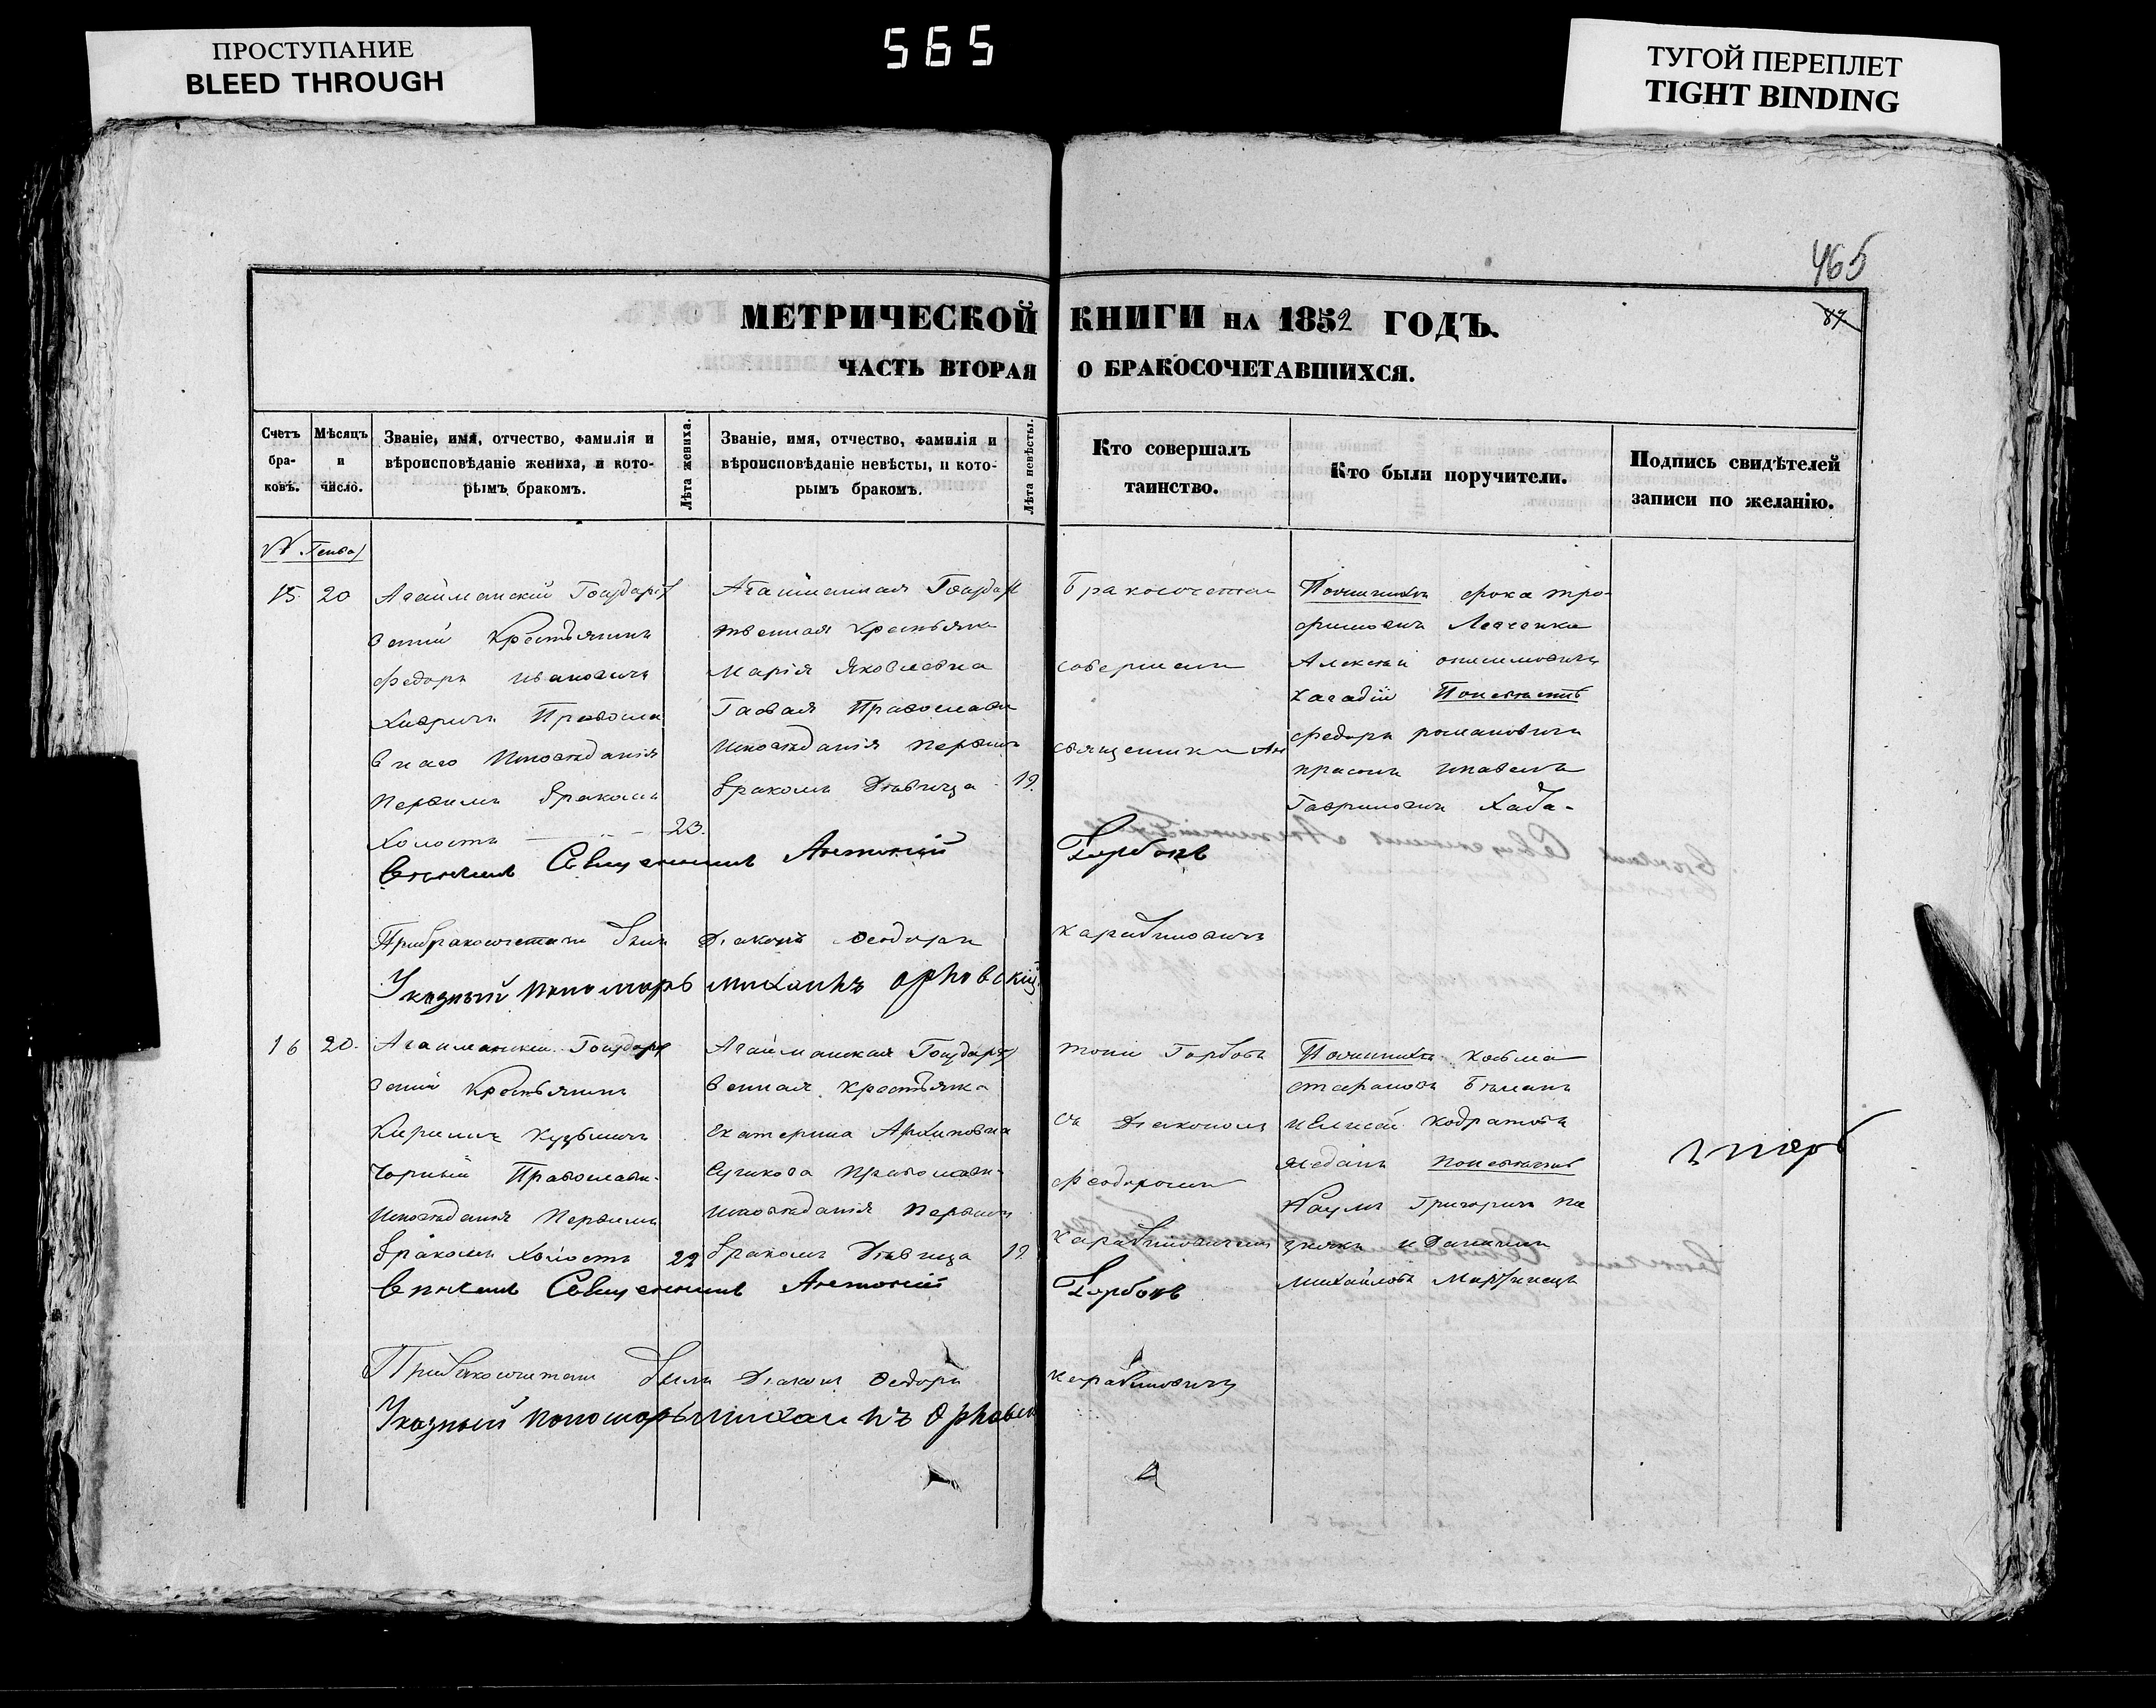 ПРОСТУПАНИЕ
BLEED THROUGH
565
ТУГОЙ ПЕРЕПЛЕТ
TIGHT BINDING
465
87
МЕТРИЧЕСКОЙ КНИГИ НА 1852 ГОДЪ.
ЧАСТЬ ВТОРАЯ О БРАКОСОЧЕТАВШИХСЯ.
Счетъ бра-ковъ.
Мѣсяцъ и число.
Званіе, имя, отчество, фамилія и
вѣроисповѣданіе жениха, и кото-
рымъ бракомъ.
Лѣта жениха.
Званіе, имя, отчество, фамилія и
вѣроисповѣданіе невѣсты, и кото-
рымъ бракомъ.
Лѣта невѣсты.
Кто совершалъ
таинство.
Кто были поручители.
Подпись свидѣтелей
записи по желанію.
№ Генва
15. 20
Агайманскій Государст
венній Крестьянинъ
Федоръ Ивановичъ
Православ
внаго Исповѣданія
Первымъ бракомъ
Холостъ 23.
Агайманская Государс
твенная Крестьянка
Марія Яковлевна
Гаевая Православн
Исповѣданія Первымъ
бракомъ Дѣвица 19.
Бракосочетаніе
совершалъ
священникъ Ан
Фока Тро-
фимовичъ
Алексѣй Онисимовичъ
По невѣстѣ
Федоръ Романовичъ
Гавриловичъ
Вѣнчалъ Священникъ Антоній Горбовъ
При бракосочетаніи былъ Діаконъ Феодоръ Карабиновичъ
Указный пономарь Михаилъ Орловскій
16 20.
Агайманскій Государст
венній Крестьянинъ
Кирилъ Кузьмичъ
Чорный Православн.
Исповѣданія Первымъ
бракомъ Холостъ 22
Агайманская Государст
венная Крестьянка
Екатерина Архиповна
Сучкова Православн-
Исповѣданія Первымъ
бракомъ Дѣвица 19
тоній Горбовъ
съ Діакономъ
Феодоромъ
Карабиновичемъ
Козьма
Стефановъ
и Елисей Кодратовъ
По невѣстѣ
Наумъ Григоричъ
и Данилъ
Михайловъ Мартинецъ
Вѣнчалъ Священникъ Антоній Горбовъ
При бракосочетаніи былъ Діаконъ Федоръ Карабиновичъ
Указный пономарь Михаилъ Орловск